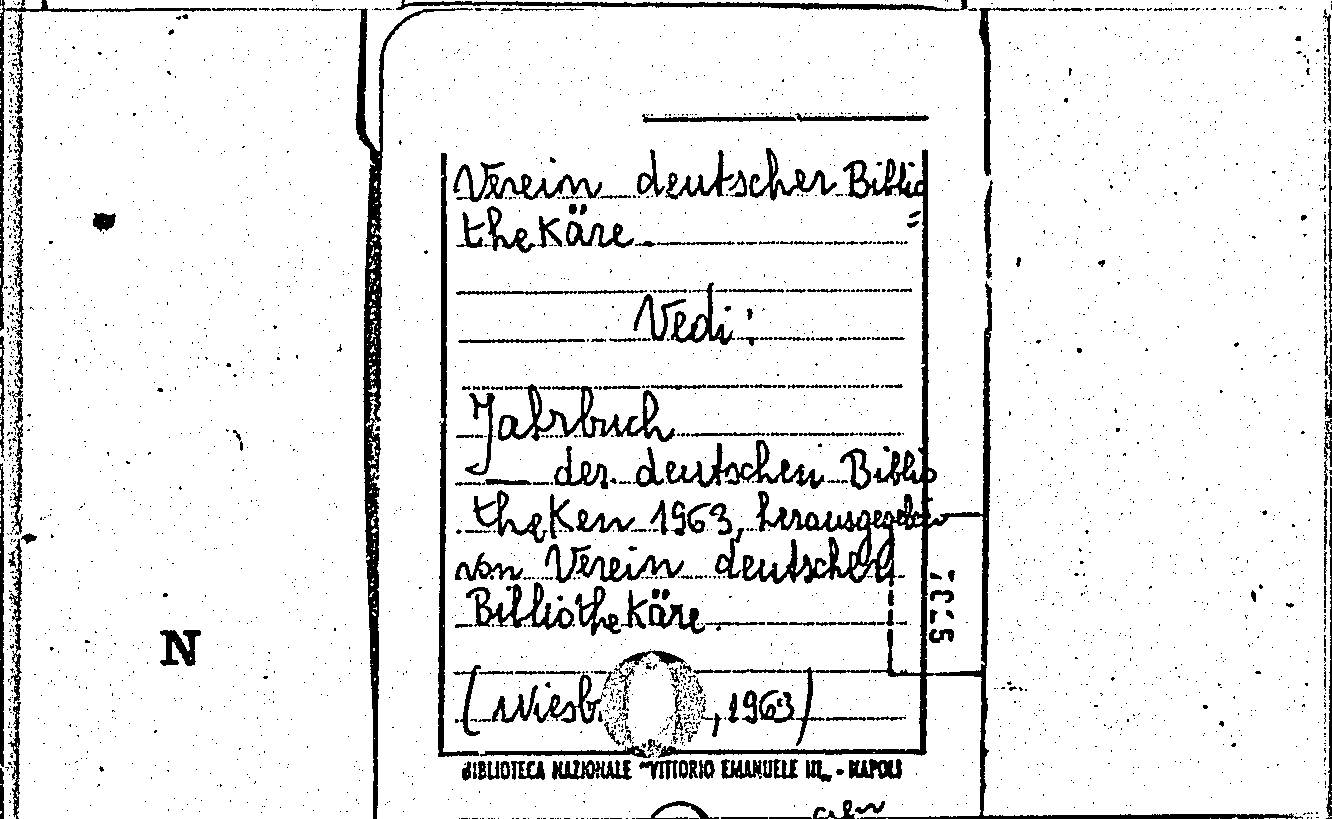 Verein deutscher Biblio
=
thekäre.
Vedi:
Jahrbuch
der deutschen Biblio
theken 1963, herausgegeben
von Verein deutscher
Bibliothekäre.
(Wiesb. , 1963)
BIBLIOTECA NAZIONALE "VITTORIO EMANUELE III„ - NAPOLI
N